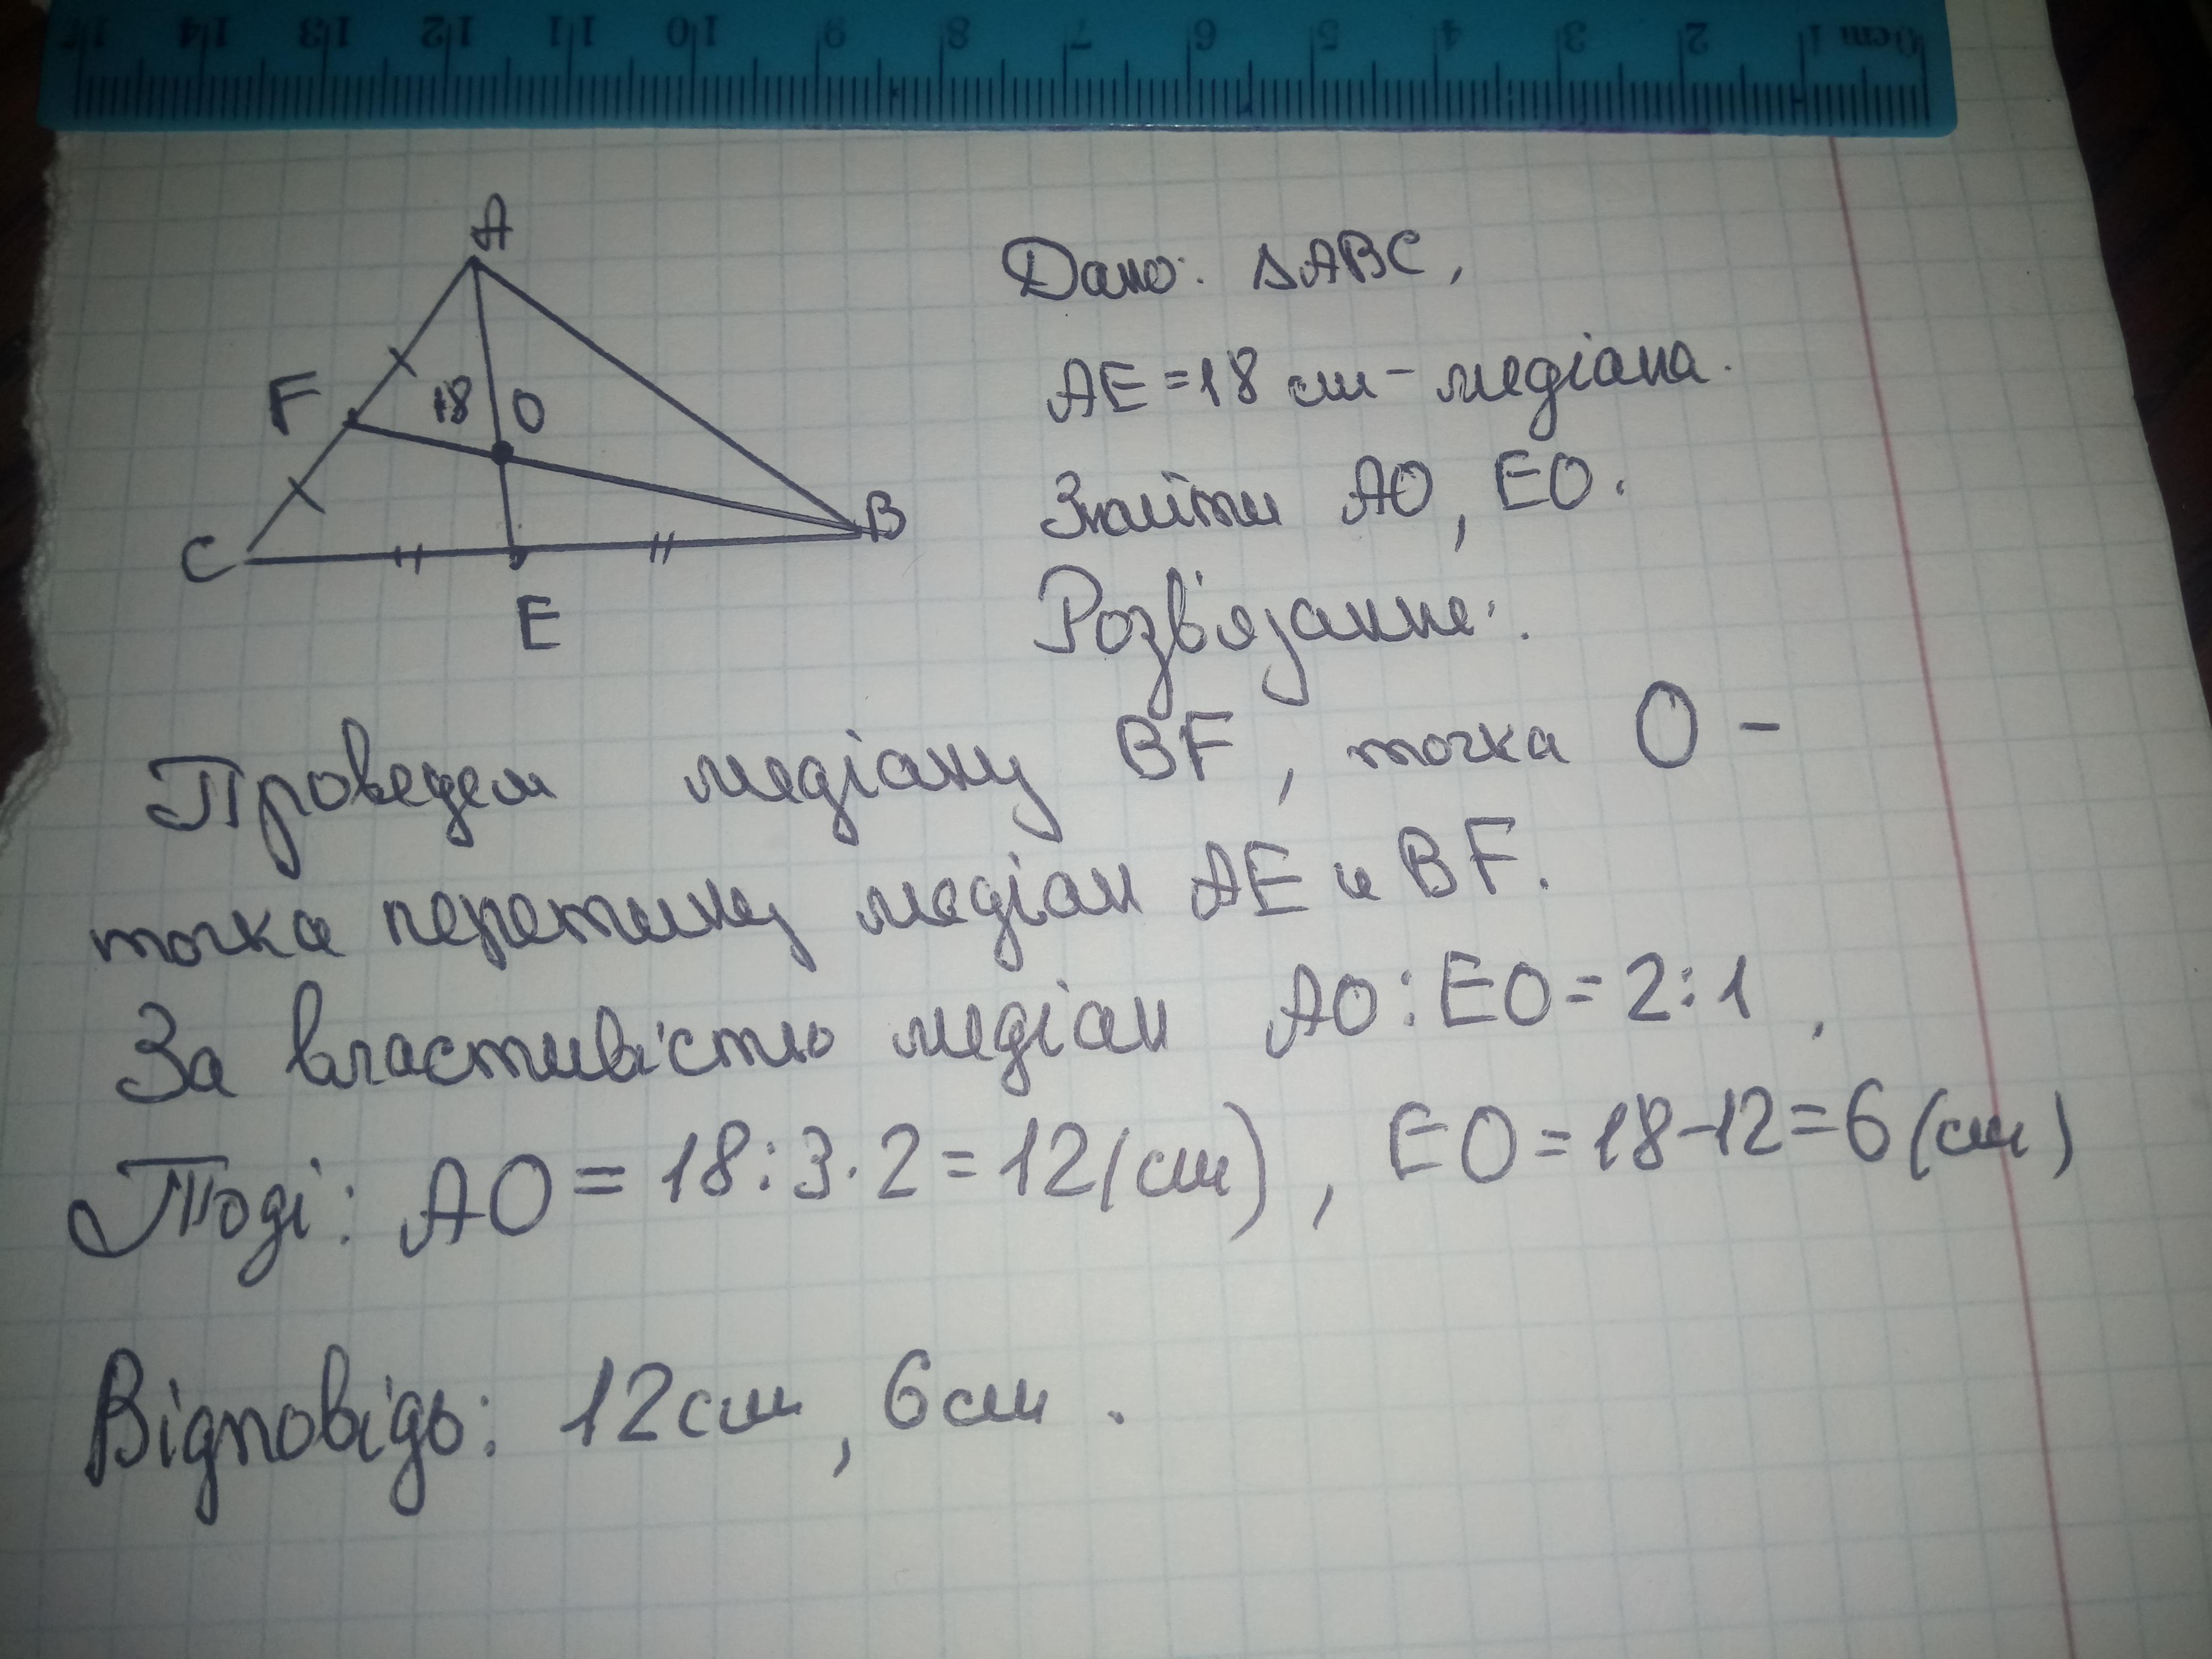 15 14 13 12 11 10 9 8 7 6 5 4 3 2 1 0cm
A
F
18
O
C
B
E
Дано: ΔABC,
AE=18 см - медіана.
Знайти AO, EO.
Розв'язання:
Проведем медіану BF, точка O -
точка перетину медіан AE и BF.
За властивістю медіан AO:EO=2:1.
Тоді: AO = 18:3·2=12(см), EO=18-12=6(см)
Відповідь: 12см, 6см.